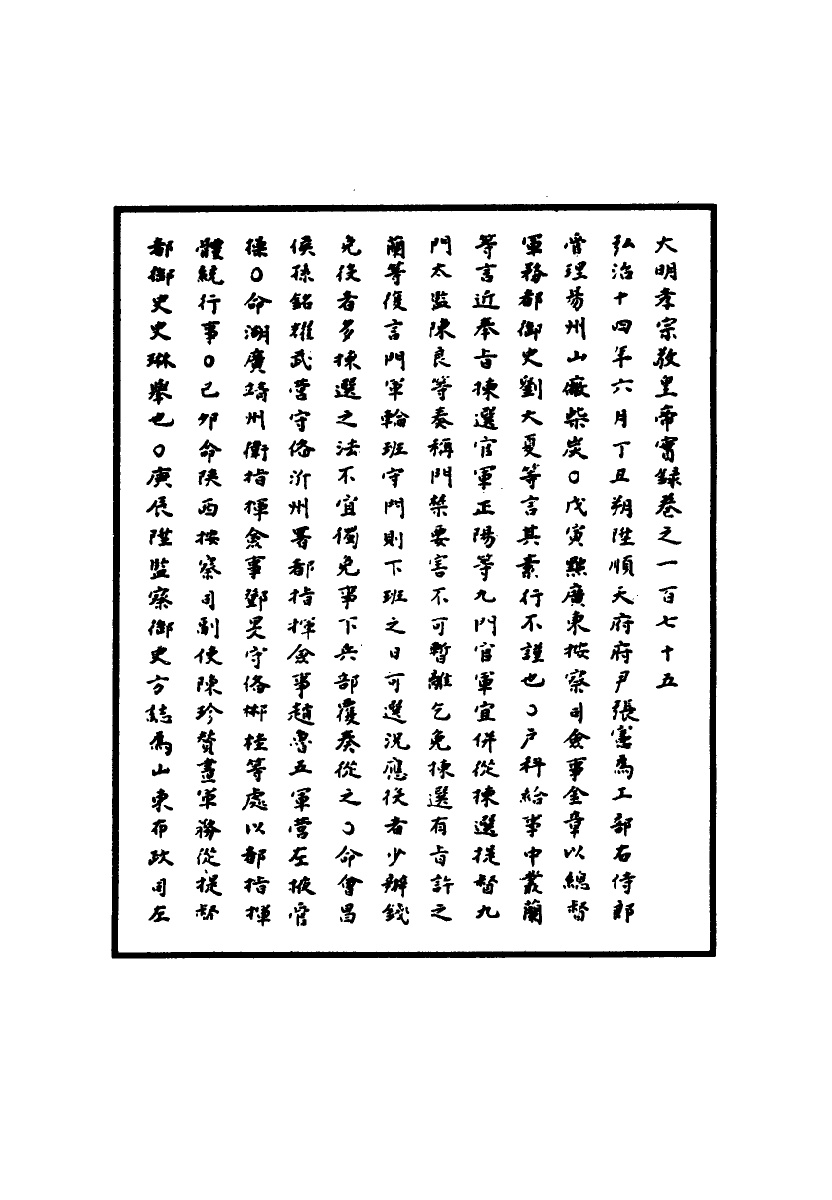 大明孝宗敬皇帝實録卷之一百七十五
弘治十四年六月丁丑朔陞順天府府尹張憲爲工部右侍郎
管理易州山廠柴炭○戊寅黜廣東按察司僉事金章以總督
軍務都御史劉大夏等言其素行不謹也○户科給事中叢蘭
等言近奉旨揀選官軍正陽等九門官軍宜併從揀選提督九
門太監陳良等奏稱門禁要害不可暫離乞免揀選有旨許之
蘭等復言門軍輪班守門則下班之日可選況應役者少辦錢
免役者多揀選之法不宜獨免事下兵部覆奏從之○命會昌
侯孫銘耀武營守俻沂州署都指揮僉事趙㻞五軍營左掖管
操○命湖廣靖州衛指揮僉事鄧炅守俻郴桂等處以都指揮
體統行事○己卯命陕西按察司副使陳珍贊畫軍務從提督
都御史史琳舉也○庚辰陞監察御史方誌爲山東布政司左